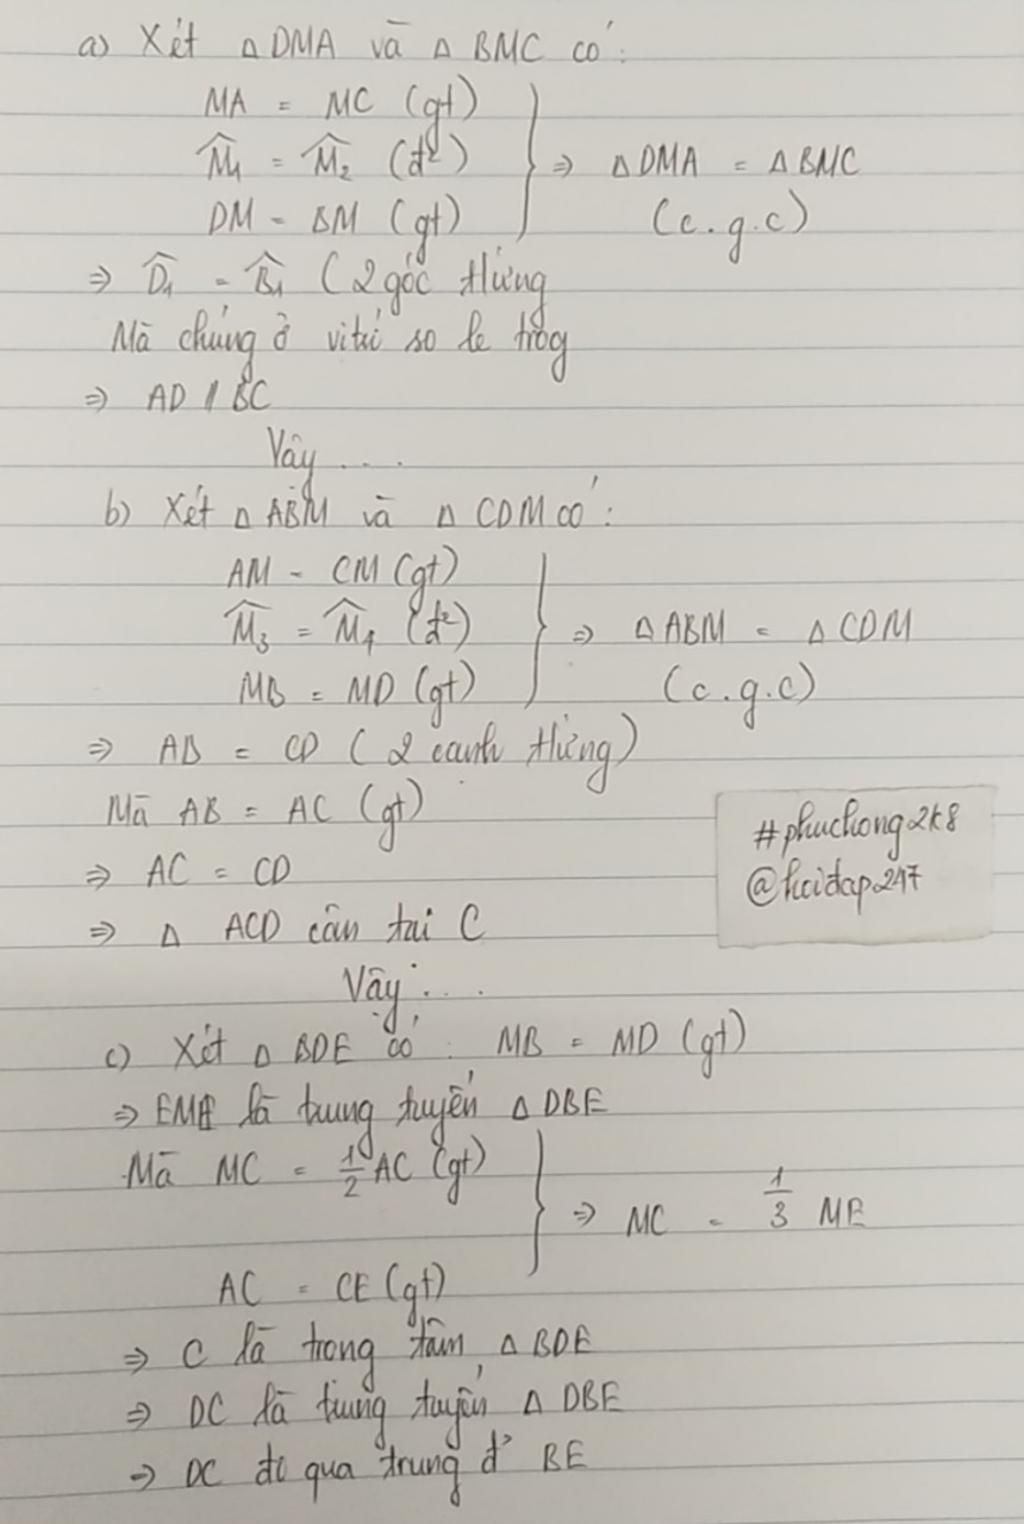 a) Xét Δ DMA và Δ BMC có:
MA = MC (gt)
M̂₁ = M̂₂ (đ²) } ⇒ Δ DMA = Δ BMC
DM = BM (gt) (c.g.c)
⇒ D̂₁ = B̂₁ (2 góc tứng
Mà chúng ở vị trí so le trog
⇒ AD // BC
Vậy ....
b) Xét Δ ABM và Δ CDM có:
AM = CM (gt)
M̂₃ = M̂₄ (đ²) } ⇒ Δ ABM = Δ CDM
MB = MD (gt) (c.g.c)
⇒ AB = CD (2 cạnh tứng)
Mà AB = AC (gt)
⇒ AC = CD
⇒ Δ ACD cân tại C
Vậy ....
#phuchong2k8
@hoidap247
c) Xét Δ BDE có: MB = MD (gt)
⇒ EM là trung tuyến Δ DBE
Mà MC = 1/2 AC (gt)
} ⇒ MC = 1/3 ME
AC = CE (gt)
⇒ C là trọng tâm Δ BDE
⇒ DC là trung tuyến Δ DBE
⇒ DC đi qua trung đ' BE